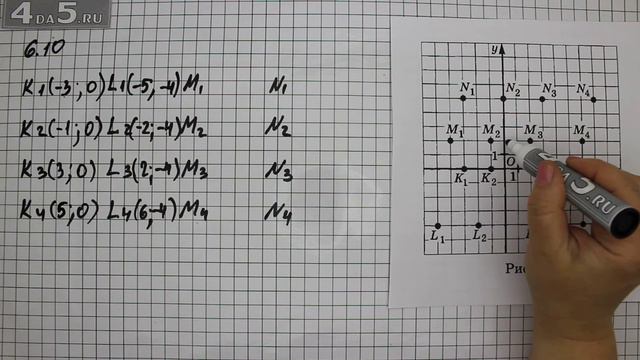 4DA5.RU
6.10
K1(-3; 0) L1(-5; -4) M1 N1
K2(-1; 0) L2(-2; -4) M2 N2
K3(3; 0) L3(2; -4) M3 N3
K4(5; 0) L4(6; -4) M4 N4
y
N1 N2 N3 N4
M1 M2 M3 M4
1 O
K1 K2 1
L1 L2
Рис
4DA5.RU